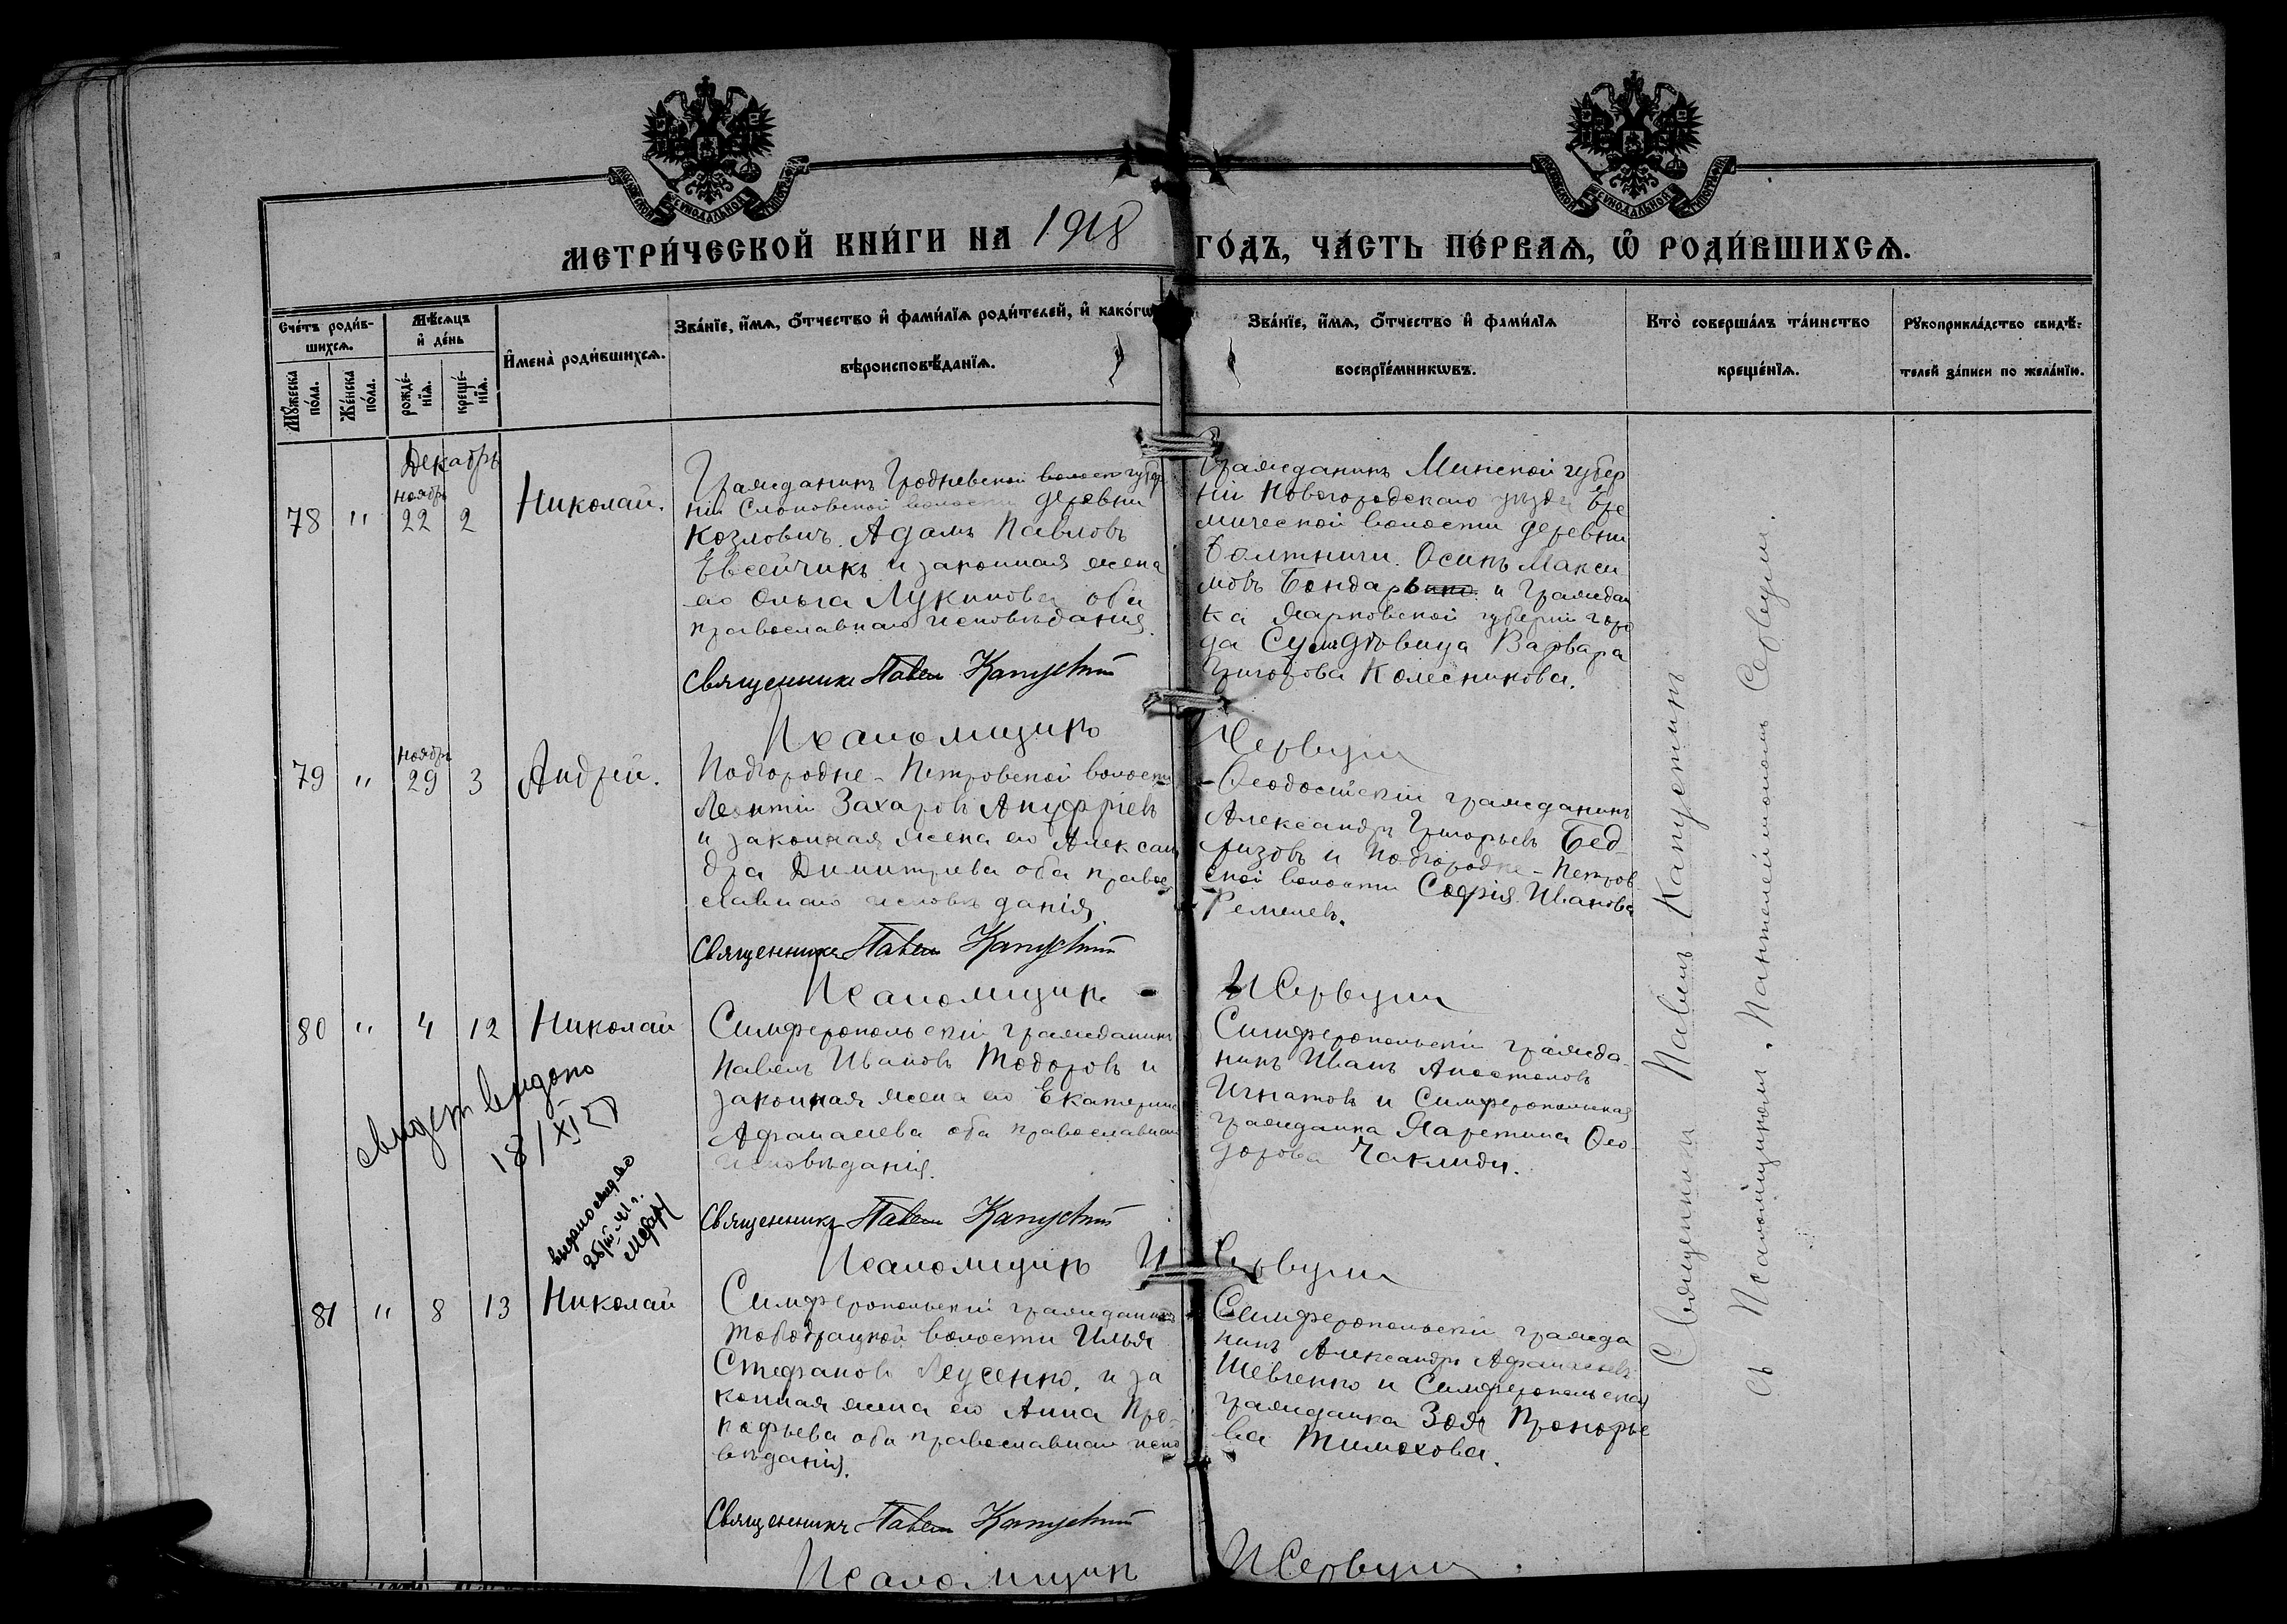 МЕТРИ́ЧЕСКОЙ КНИ́ГИ НА 1918 ГО́ДЪ, ЧА́СТЬ ПЕ́РВАѦ, Ѡ҆ РОДИ́ВШИХСѦ.
Сче́тъ роди́в-
шихсѧ.
Мꙋ́жеска
по́ла.
Же́нска
по́ла.
Мѣ́сѧцъ
и҆ де́нь
рожде́-
нїѧ.
креще́-
нїѧ.
И҆мена̀ роди́вшихсѧ.
Зва́нїе, и҆́мѧ, ѻ҆́тчество и҆ фами́лїѧ роди́телей, и҆ како́гѡ
вѣроисповѣ́данїѧ.
Зва́нїе, и҆́мѧ, ѻ҆́тчество и҆ фами́лїѧ
воспрїе́мникѡвъ.
Кто̀ соверша́лъ та́инство
креще́нїѧ.
Рꙋкоприкла́дство свидѣ́-
телей за́писи по жела́нїю.
Декабрь
78 " ноябрь 22 2 Николай.
Гражданинъ Гродневской губер
нiи Слоновской волости деревни
Козловичъ Адамъ Павловъ
Евсейчикъ и законная жена
его Ольга Лукинова оба
православнаго исповѣданiя.
Священникъ Павелъ Капустинъ
Псаломщикъ
Гражданинъ Минской губер
нiи Новогородскаго уѣзда Ере
мической волости деревни
Болтничи. Осипъ Макси
мовъ Бондарь и граждан
ка Харковской губернiи горо
да Варвара
Григорова Колесникова.
79 " ноябрь 29 3 Андрей.
Подгородне-Петровской волости
Леонтiй Захаровъ Ануфрiевъ
и законная жена его Алексан
дра Димитрiева оба правос
славнаго исповѣданiя.
Священникъ Павелъ Капустинъ
Псаломщикъ
Ѳеодосiйскiй гражданинъ
Александръ Григорьевъ Бед-
ризовъ и Подгородне-Петров-
ской волости Софiя Иванова
Ремелевъ.
И Сервули
80 " 4 12 Николай
Симферопольскiй гражданинъ
Павелъ Ивановъ Тодоровъ и
законная жена его Екатерина
Афанасiева оба православнаго
исповѣданiя.
Священникъ Павелъ Капустинъ
Псаломщикъ И Сервули
Симферопольскiй гражда-
нинъ Иванъ Апостоловъ
Игнатовъ и Симферопольская
гражданка Харетина Ѳео
дорова Чаклиди.
свидет выдано
18/XI
выдано свид-во
25/III-41 г.
81 " 8 13 Николай
Симферопольскiй гражданинъ
волости Илья
Стефановъ Леусенко, и за
конная жена его Анна Про-
кофьева оба православнаго испо
вѣданiя.
Священникъ Павелъ Капустинъ
Псаломщикъ
Симферопольскiй гражда
нинъ Александръ Афанасiевъ
Шевченко и Симферопольская
гражданка Зоя Прокофье
ва Тимохова.
И Сервули
Священникъ Павелъ Капустинъ
съ Псаломщикомъ Пантелеймономъ Сервули.